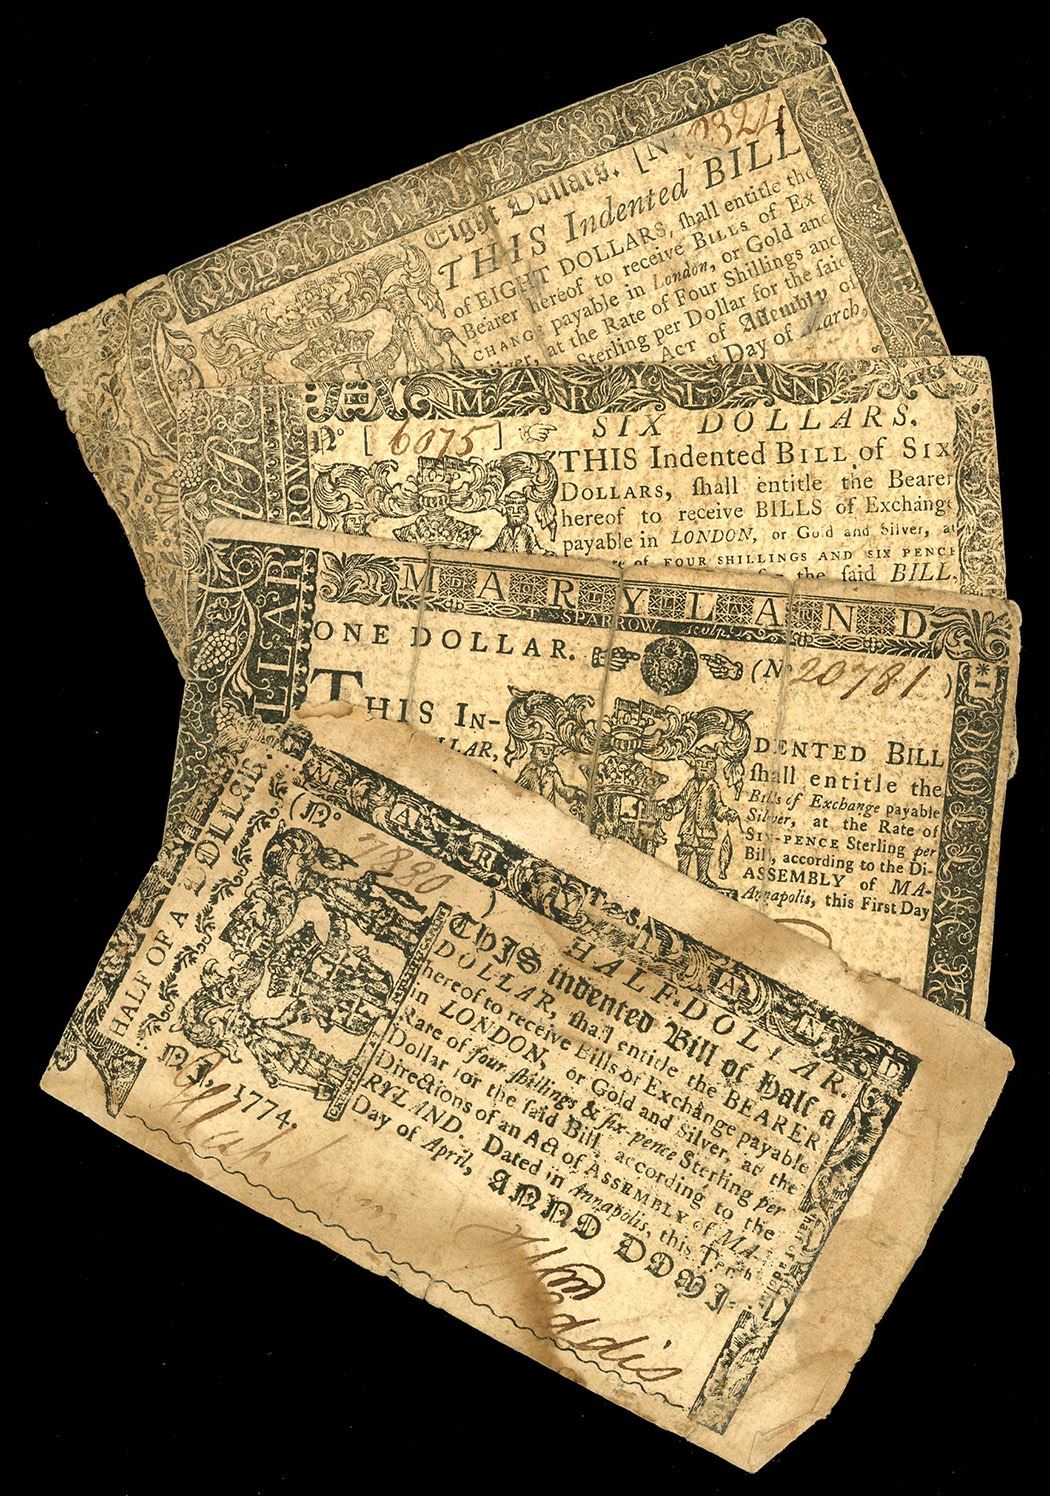 Eight Dollars. [No 10324
THIS Indented BILL
of EIGHT DOLLARS, ſhall entitle the
Bearer hereof to receive BILLS of EX
CHANGE payable in London, or Gold and
er, at the Rate of Four Shillings and
Sterling per Dollar for the ſaid
ACT of Aſſembly of
Day of March,
MARYLAN
No [6075] SIX DOLLARS.
THIS Indented BILL of SIX
DOLLARS, ſhall entitle the Bearer
hereof to receive BILLS of Exchange
payable in LONDON, or Gold and Silver, at
of FOUR SHILLINGS AND SIX PENCE
the ſaid BILL,
ROW
MARYLAND
T. SPARROW ſculp.
LLAR
ONE DOLLAR. (No 20781)
THIS IN-
LLAR,
DENTED BILL
ſhall entitle the
Bills of Exchange payable
Silver, at the Rate of
SIX-PENCE Sterling per
Bill, according to the Di-
ASSEMBLY of MA-
Annapolis, this Firſt Day
MARYLAND
T. S.
HALF OF A DOLLAR.
(No 7880)
HALF-DOLLAR.
THIS indented Bill of Half a
DOLLAR, ſhall entitle the BEARER
hereof to receive Bills of Exchange payable
in LONDON, or Gold and Silver, at the
Rate of four ſhillings & ſix-pence Sterling per
Dollar for the ſaid Bill, according to the
Directions of an Act of ASSEMBLY of MA-
RYLAND. Dated in Annapolis, this Tenth
Day of April, ANNO DOMI-
NI, 1774.
Wm Eddis